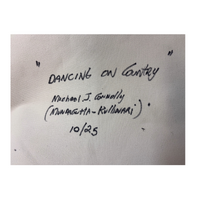 " DANCING ON Country "
Michael J. Connolly
(MUNAGUTTA-KULLIWARI)
10/25